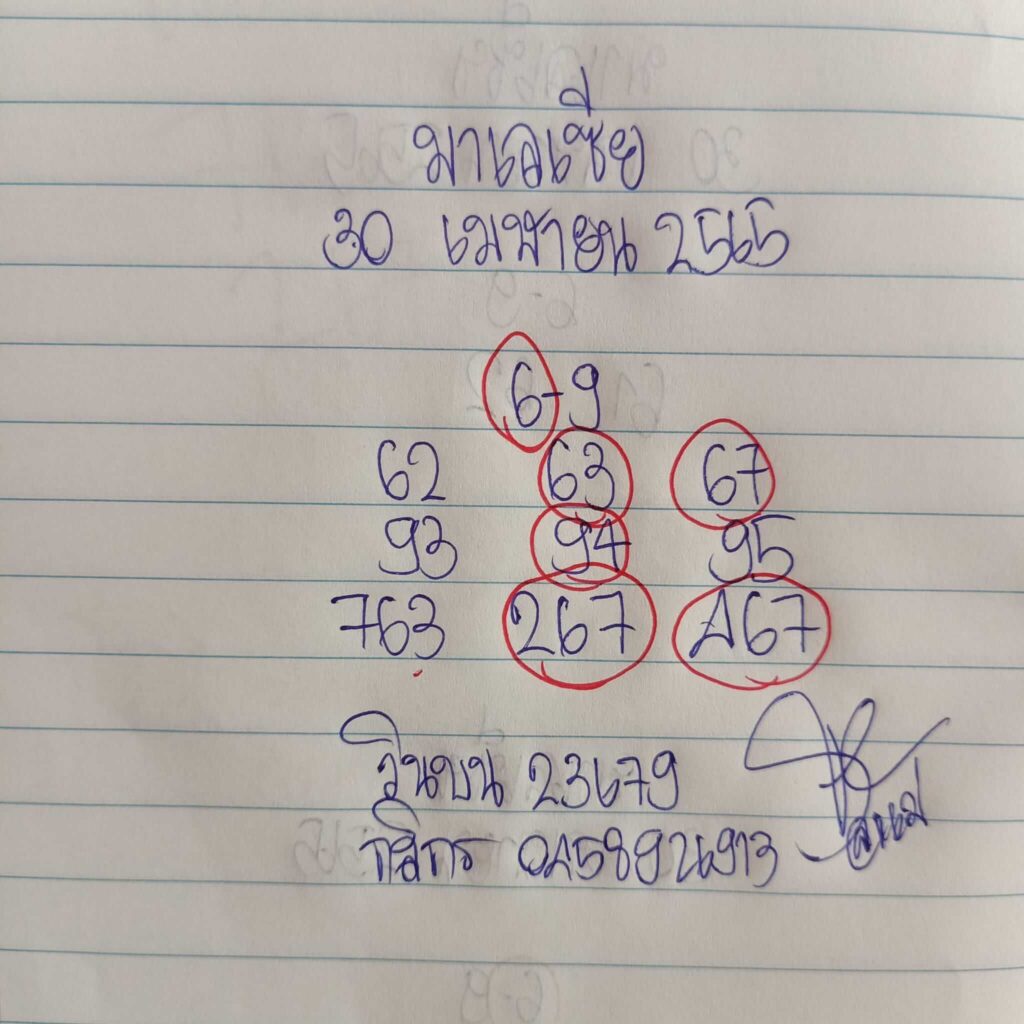 มาเลเซีย
30 เมษายน 2565
6-9
62 63 67
93 94 95
763 267 467
วินบน 23679
กสิกร 0458926913